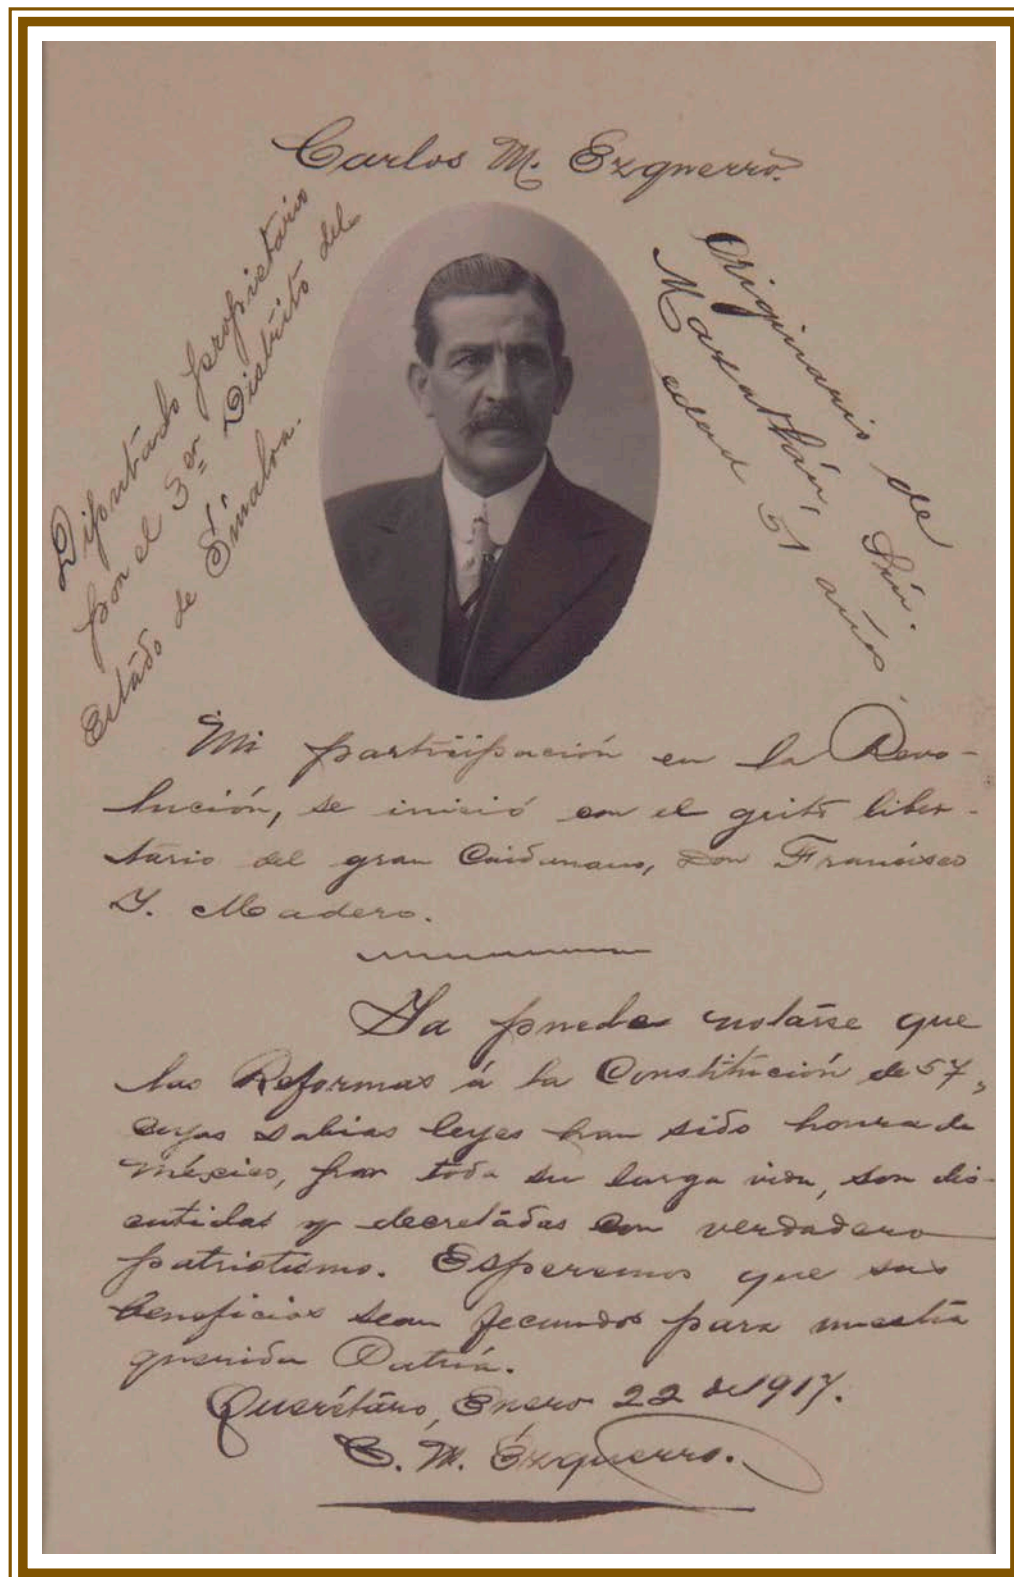 Carlos M. Ezquerro.
Diputado propietario
por el 3er Distrito del
Estado de Sinaloa.
Originario de
Mazatlán, Sin.
edad 51 años
Mi participación en la Revo-
lución, se inició con el grito liber-
tario del gran Ciudadano, Don Francisco
I. Madero.
Ya puede notarse que
las Reformas á la Constitución de 57,
cuyas sabias leyes han sido honra de
México, por toda su larga vida, son dis-
cutidas y decretadas con verdadero
patriotismo. Esperemos que sus
beneficios sean fecundos para nuestra
querida Patria.
Querétaro, Enero 22 de 1917.
C. M. Ezquerro.